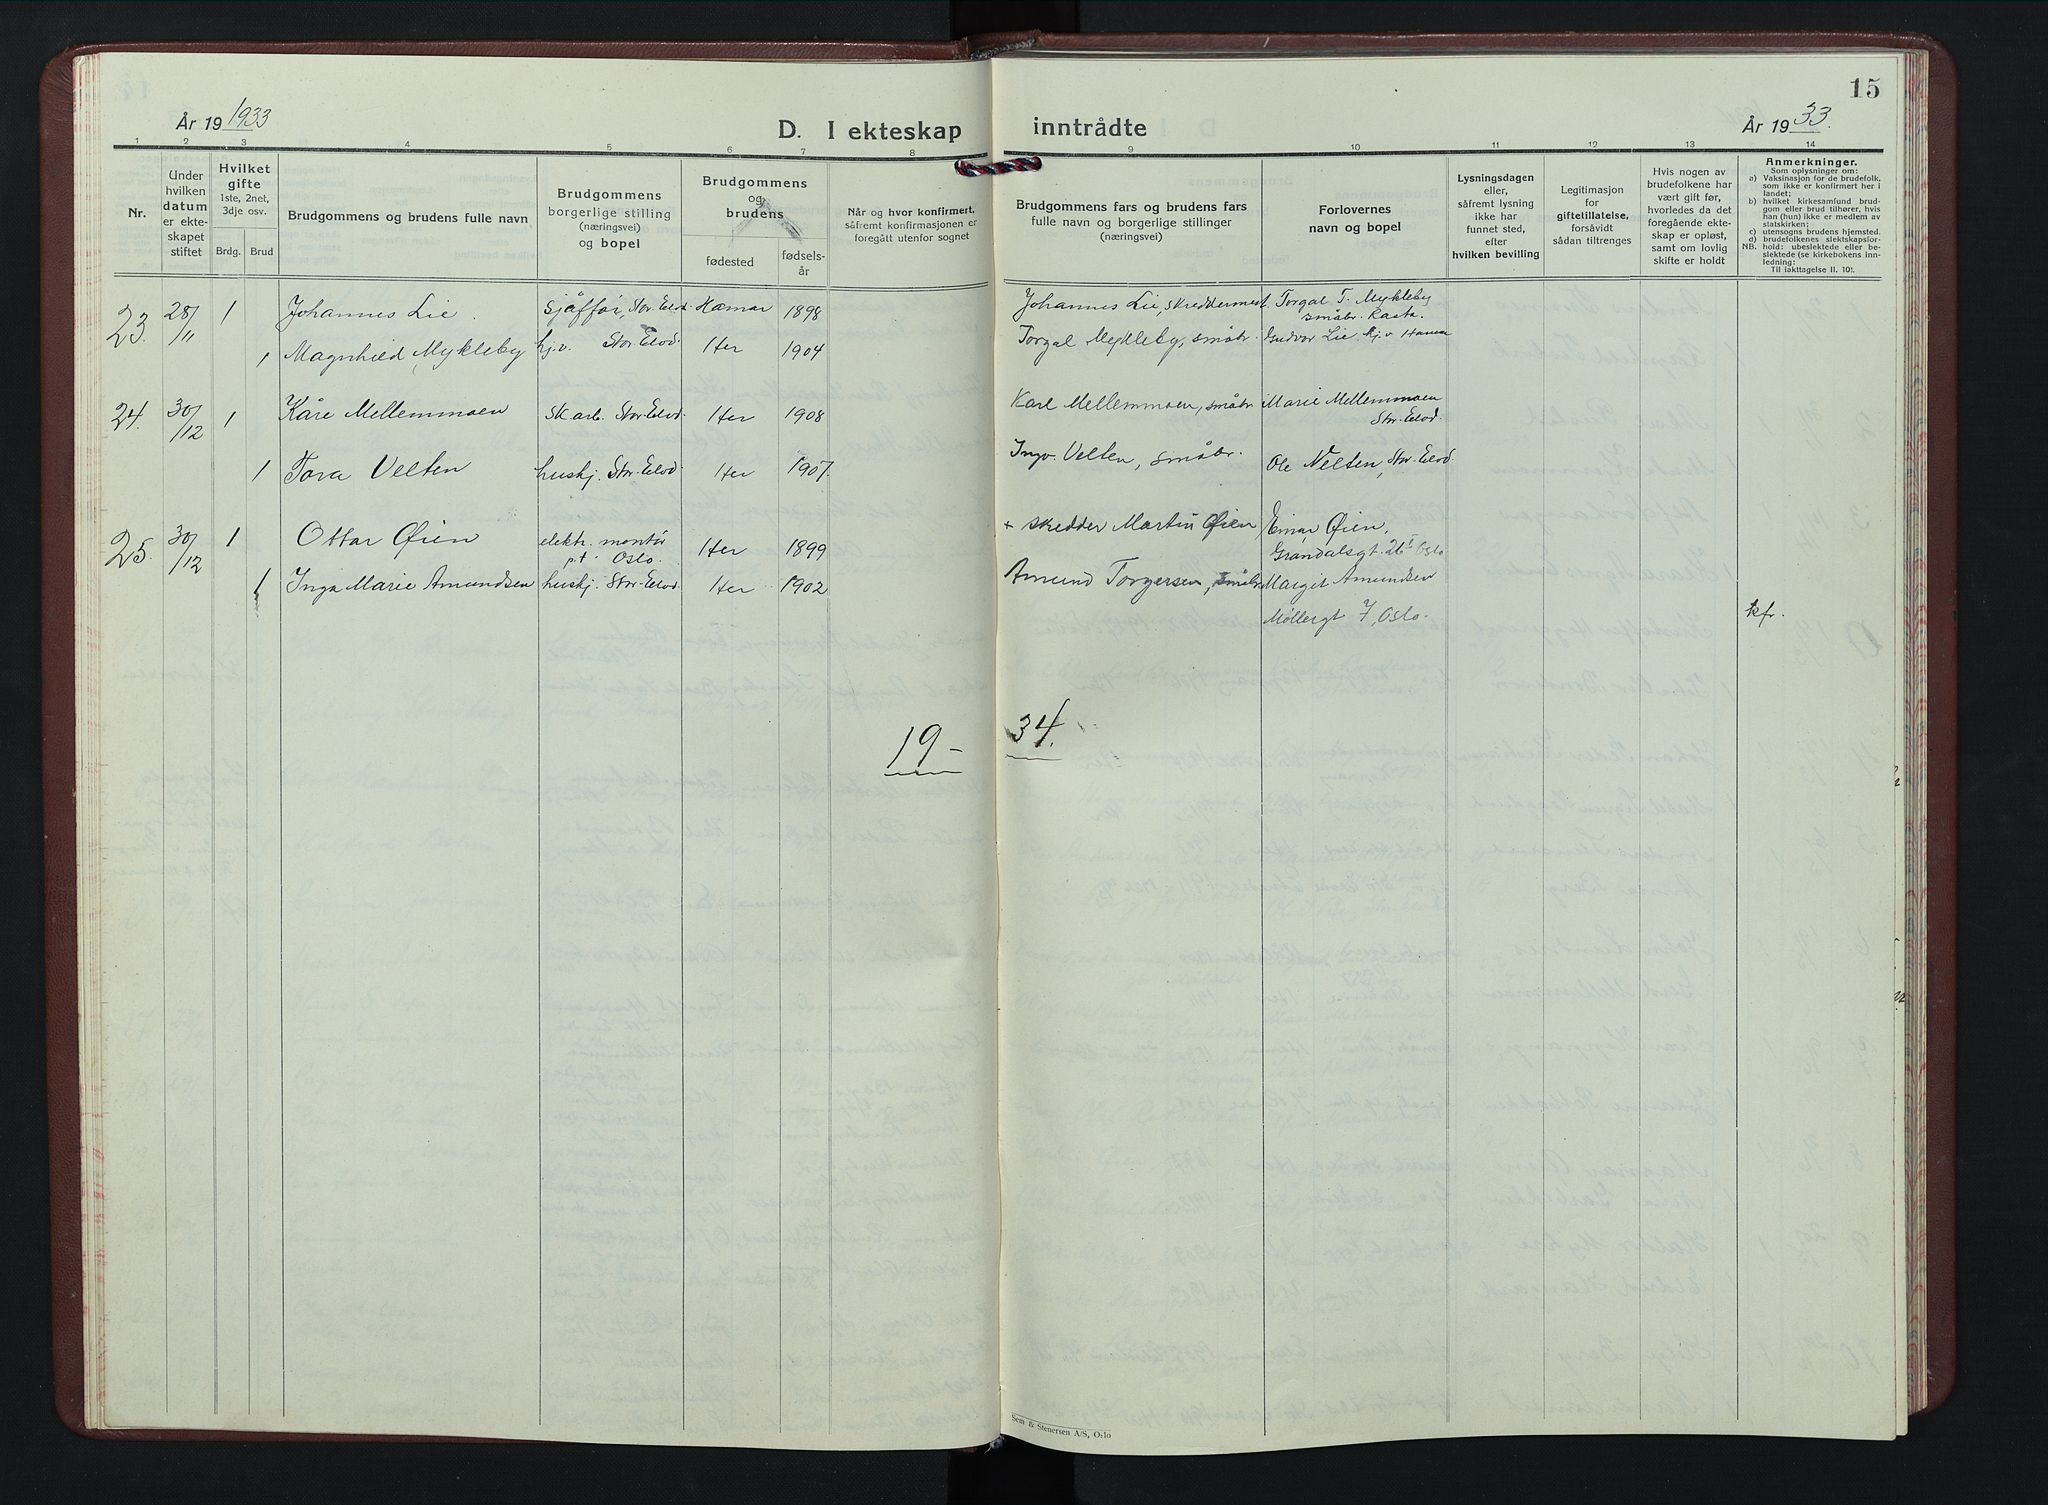 15
År 19 1933
D. I ekteskap inntrådte
År 19 33.
1 2 3 4 5 6 7 8 9 10 11 12 13 14
Nr.
Under hvilken datum er ekteskapet stiftet
Hvilket gifte 1ste, 2net, 3dje osv.
Brdg. Brud
Brudgommens og brudens fulle navn
Brudgommens borgerlige stilling (næringsvei) og bopel
Brudgommens og brudens
fødested
fødselsår
Når og hvor konfirmert. såfremt konfirmasjonen er foregått utenfor sognet
Brudgommens fars og brudens fars fulle navn og borgerlige stillinger (næringsvei)
Forlovernes navn og bopel
Lysningsdagen eller, såfremt lysning ikke har funnet sted, efter hvilken bevilling
Legitimasjon for giftetillatelse, forsåvidt sådan tiltrenges
Hvis nogen av brudefolkene har vært gift før, hvorledes da det foregående ekteskap er opløst, samt om lovlig skifte er holdt
Anmerkninger.
Som oplysninger om:
a) Vaksinasjon for de brudefolk, som ikke er konfirmert her i landet;
b) hvilket kirkesamfund brudgom eller brud tilhører, hvis han (hun) ikke er medlem av statskirken;
c) utensogns brudens hjemsted.
d) brudefolkenes slektskapsforhold: ubeslektede eller beslektede (se kirkebokens innledning:
NB.
Til iakttagelse II. 10).
23. 28/11 1 Johannes Lie. Sjåffør, Stor-Elvd. Hamar 1898 Johannes Lie, skreddermest. Torgal T. Mykleby
småbr. Rasta.
1 Magnhild Mykleby hj.v. Stor-Elvd. Her 1904 Torgal Mykleby, småbr. Gudvor Lie hj.v. Hamar
24. 30/12 1 Kåre Mellemmoen Skarb. Stor-Elvd. Her 1908 Karl Mellemmoen, småbr. Marie Mellemmoen
Stor-Elvd.
1 Tora Velten hushj. Stor-Elvd. Her 1907. Ingv. Velten, småbr. Ole Velten, Stor-Elvd.
25. 30/12 1 Ottar Øien elektr. montør
p.t. Oslo. Her 1899 + skredder Martin Øien Einar Øien,
Grøndalsgt. 26 I Oslo
1 Inga Marie Amundsen hushj. Stor-Elvd. Her 1902 Amund Torgersen, småbr. Margit Amundsen
Møllergt 7, Oslo. kfr.
19 - 34.
Sem & Stenersen A/S, Oslo